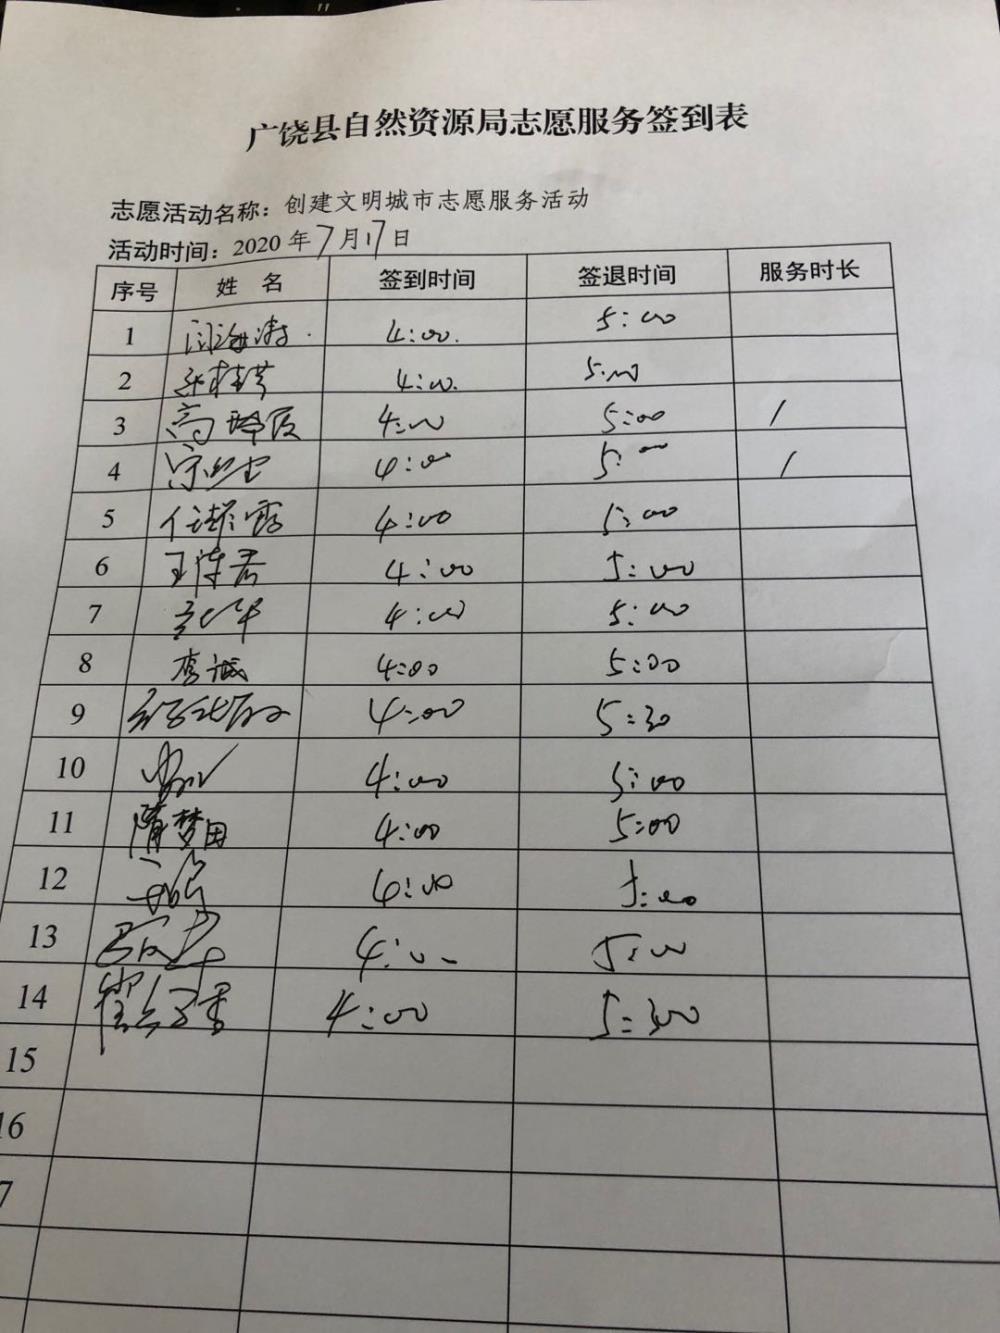 广饶县自然资源局志愿服务签到表
志愿活动名称：创建文明城市志愿服务活动
活动时间：2020年7月17日
序号 姓名 签到时间 签退时间 服务时长
1 4:00. 5:00
2 4:00. 5:00
3 高 4:00 5:00 1
4 4:00 5:00 1
5 4:00 5:00
6 王 4:00 5:00
7 4:00 5:00
8 李诚 4:00 5:00
9 4:00 5:30
10 4:00 5:00
11 隋梦田 4:00 5:00
12 4:00 5:00
13 4:00 5:00
14 4:00
15
16
7